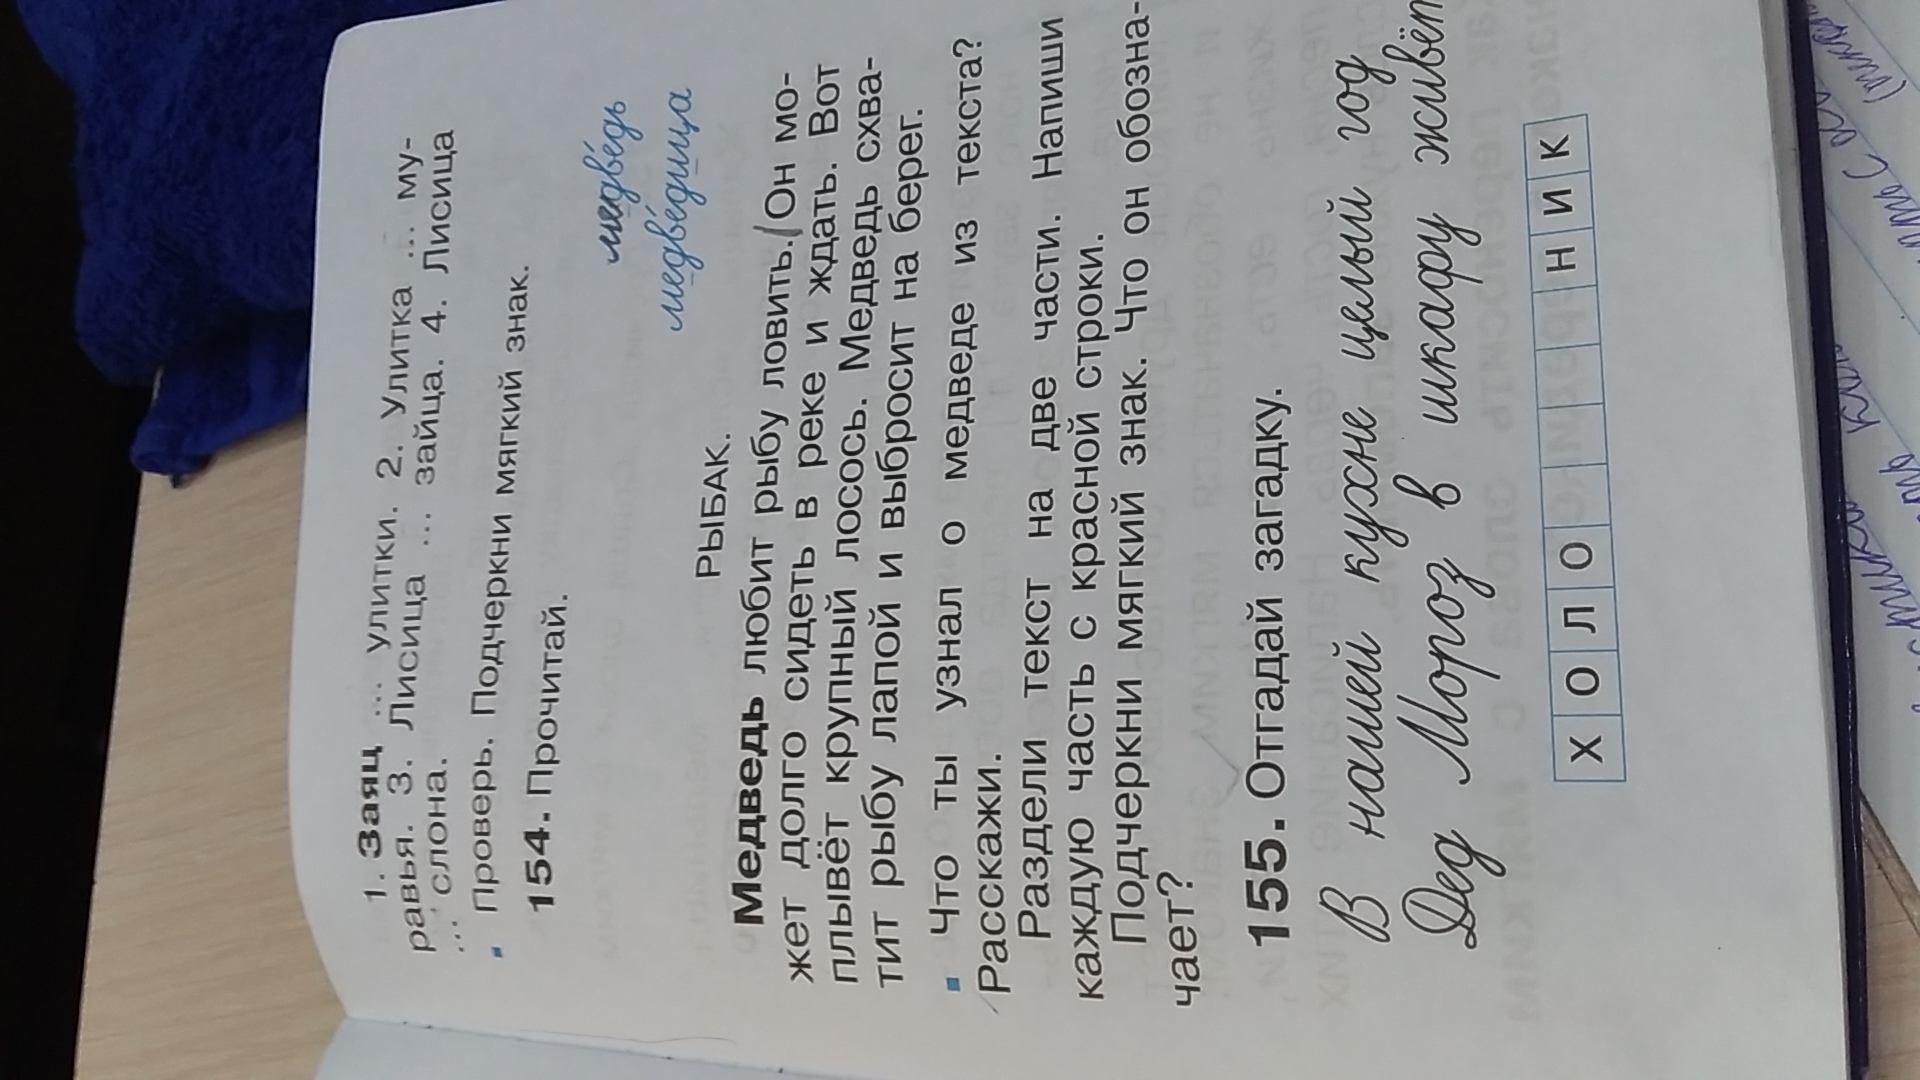 1. Заяц ... улитки. 2. Улитка ... му-
равья. 3. Лисица ... зайца. 4. Лисица
... слона.
▪ Проверь. Подчеркни мягкий знак.
154. Прочитай.
медве́дь
медве́дица
РЫБАК.
Медведь любит рыбу ловить./Он мо-
жет долго сидеть в реке и ждать. Вот
плывёт крупный лосось. Медведь схва-
тит рыбу лапой и выбросит на берег.
▪ Что ты узнал о медведе из текста?
Расскажи.
Раздели текст на две части. Напиши
каждую часть с красной строки.
Подчеркни мягкий знак. Что он обозна-
чает?
155. Отгадай загадку.
В нашей кухне целый год
Дед Мороз в шкафу живёт
ХОЛО НИК